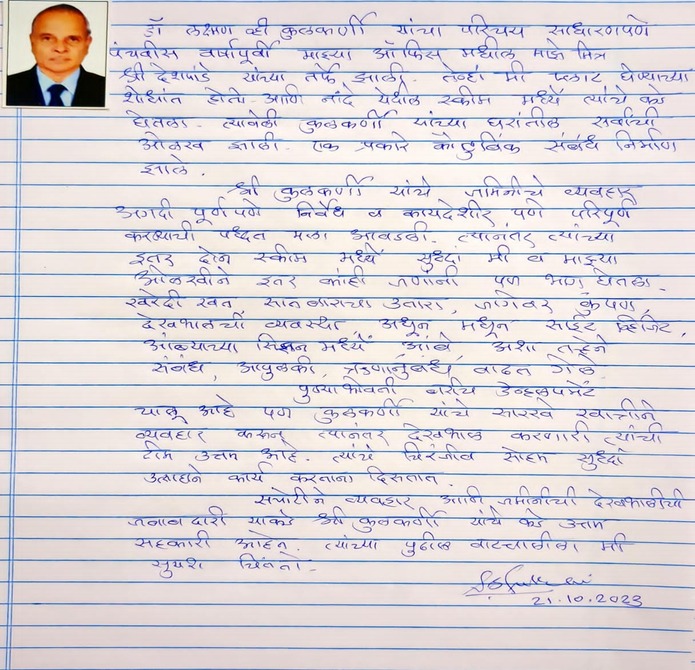 डॉ लक्ष्मण व्ही कुळकर्णी यांचा परिचय साधारणपणे
पंचवीस वर्षांपूर्वी माझ्या ऑफिस मधील माझे मित्र
श्री देशपांडे यांच्या तर्फे झाली. तेव्हां मी प्लाट घेण्याच्या
शोधांत होतो आणि नांदे येथील स्कीम मध्यें त्यांचे कडे
घेतला. त्यावेळी कुळकर्णी यांच्या घरांतील सर्वांची
ओळख झाली. एक प्रकारे कौटुंबिक संबंध निर्माण
झाले.
श्री कुळकर्णी यांचे जमिनीचे व्यवहार
अगदी पूर्णपणे निर्वेध व कायदेशीर पणे परिपूर्ण
करण्याची पध्दत मला आवडली. त्यानंतर त्यांच्या
इतर दोन स्कीम मध्यें सुध्दां मी व माझ्या
ओळखीने इतर कांही जणांनी पण भाग घेतला.
खरेदी खत सातबाराचा उतारा, जागेवर कुंपण,
देखभालची व्यवस्था, अधून मधून साईट व्हिजिट,
आंब्याच्या सिझन मध्यें आंबे अशा तऱ्हेने
संबंध, आपुलकी, ऋणानुबंध वाढत गेले
पुण्याभोवती बरीच डेव्हलपमेंट
चालू आहे पण कुळकर्णी यांचे सारखे खात्रीने
व्यवहार करून त्यानंतर देखभाळ करणारी त्यांची
टीम उत्तम आहे. त्यांचे चिरंजीव सोहम सुध्दां
उत्साहाने कार्य करताना दिसतात.
सचोटीने व्यवहार आणि जमीनीची देखभालीची
जबाबदारी याकडे श्री कुळकर्णी यांचे कडे उत्तम
सहकारी आहेत. त्यांच्या पुढील वाटचालीला मी
सुयश चिंततो.
21.10.2023